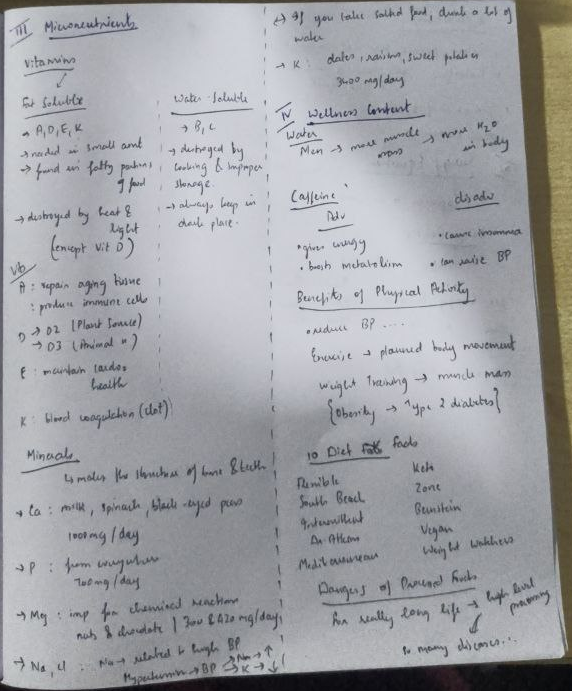 III Micronutrients
Vitamins
Fat Soluble
→ A, D, E, K
→ needed in small amt
→ found in fatty portions
of food
→ destroyed by heat &
light
(except Vit D)
Water-Soluble
→ B, C
→ destroyed by
cooking & improper
storage
→ always keep in
dark place.
Vit
A : repair aging tissue
: produce immune cells
D → D2 (Plant Source)
→ D3 (Animal ")
E : maintain cardio
health
K : blood coagulation (clot)
Minerals
↳ makes the structure of bone & teeth
→ Ca : milk, spinach, black-eyed peas
1000mg/day
→ P : from
700mg/day
→ Mg : imp for chemical reactions
nuts & chocolate | 300 & 420 mg/day
→ Na, Cl : Na → related to high BP
Hypertension → BP Na → ↑
K → ↓
↳ If you take salted food, drink a lot of
water
→ K : dates, raisins, sweet potatoes
3400 mg/day
IV Wellness Content
Water
Men → more muscle mass → more H2O
in body
Caffeine
Adv
• gives energy
• boosts metabolism
disadv
• cause insomnia
• can raise BP
Benefits of Physical Activity
• reduce BP ....
Exercise → planned body movement
Weight Training → muscle mass
{Obesity → Type 2 diabetes}
10 Diet Facts
Flexible
South Beach
Intermittent
Dr. Atkins
Mediterranean
Keto
Zone
Bernstein
Vegan
Weight Watchers
Dangers of Processed Foods
For really long life → high level
processing
↓
so many diseases...